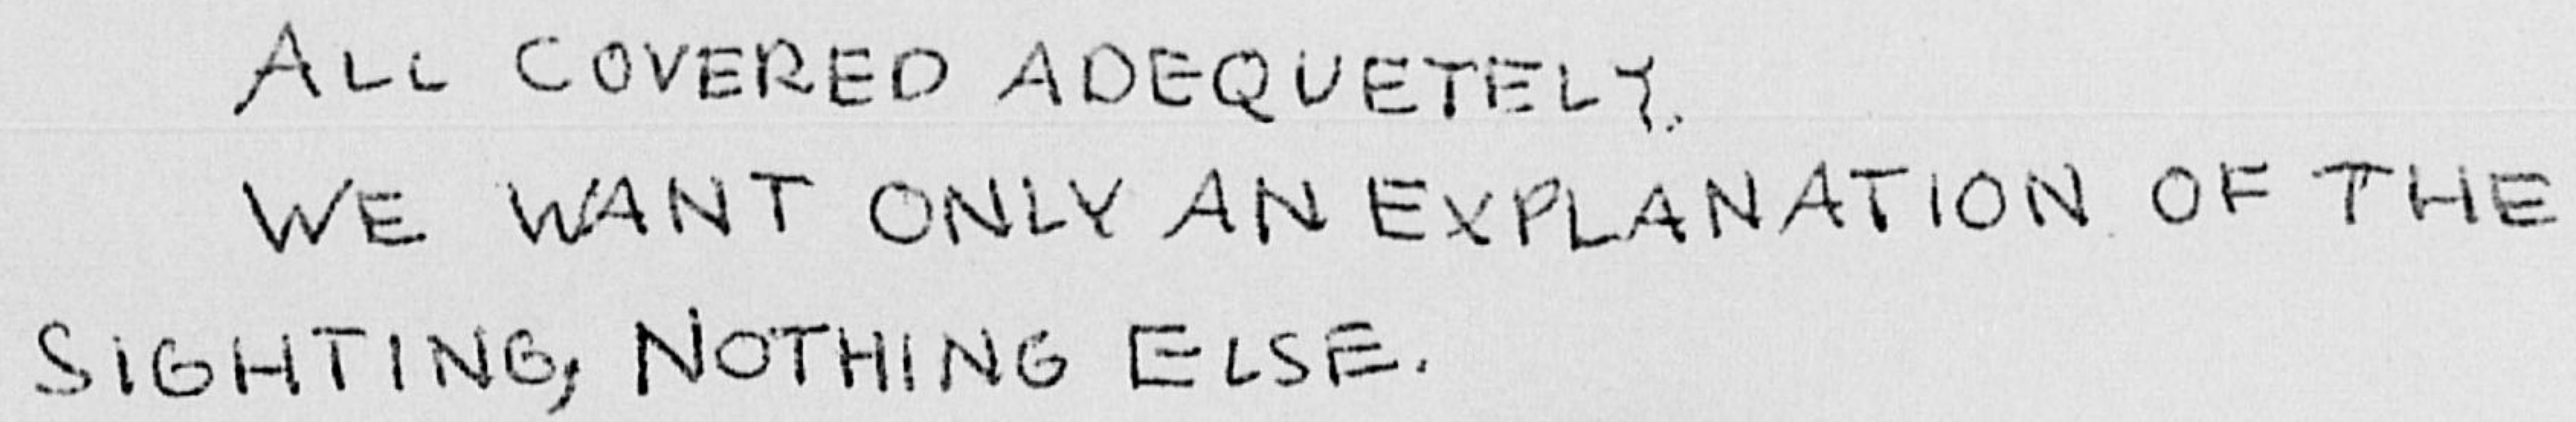 ALL COVERED ADEQUETELY.
WE WANT ONLY AN EXPLANATION OF THE
SIGHTING, NOTHING ELSE.